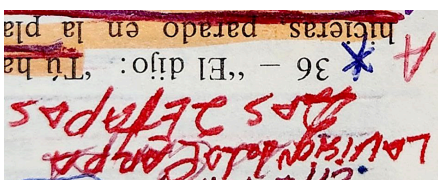 La visión de la Carpa
Las 2 Etapas
A * 36 – “El dijo: “Tú ha
hicieras parado en la pla